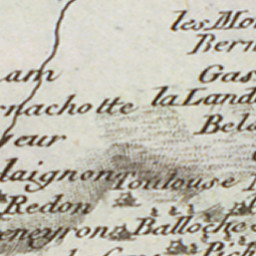 les Mo
Bern
am
Gas
rnachotte
la Land
Bela
veur
laignon
Toulouse
Redon
eneyron
Balloche
Pich